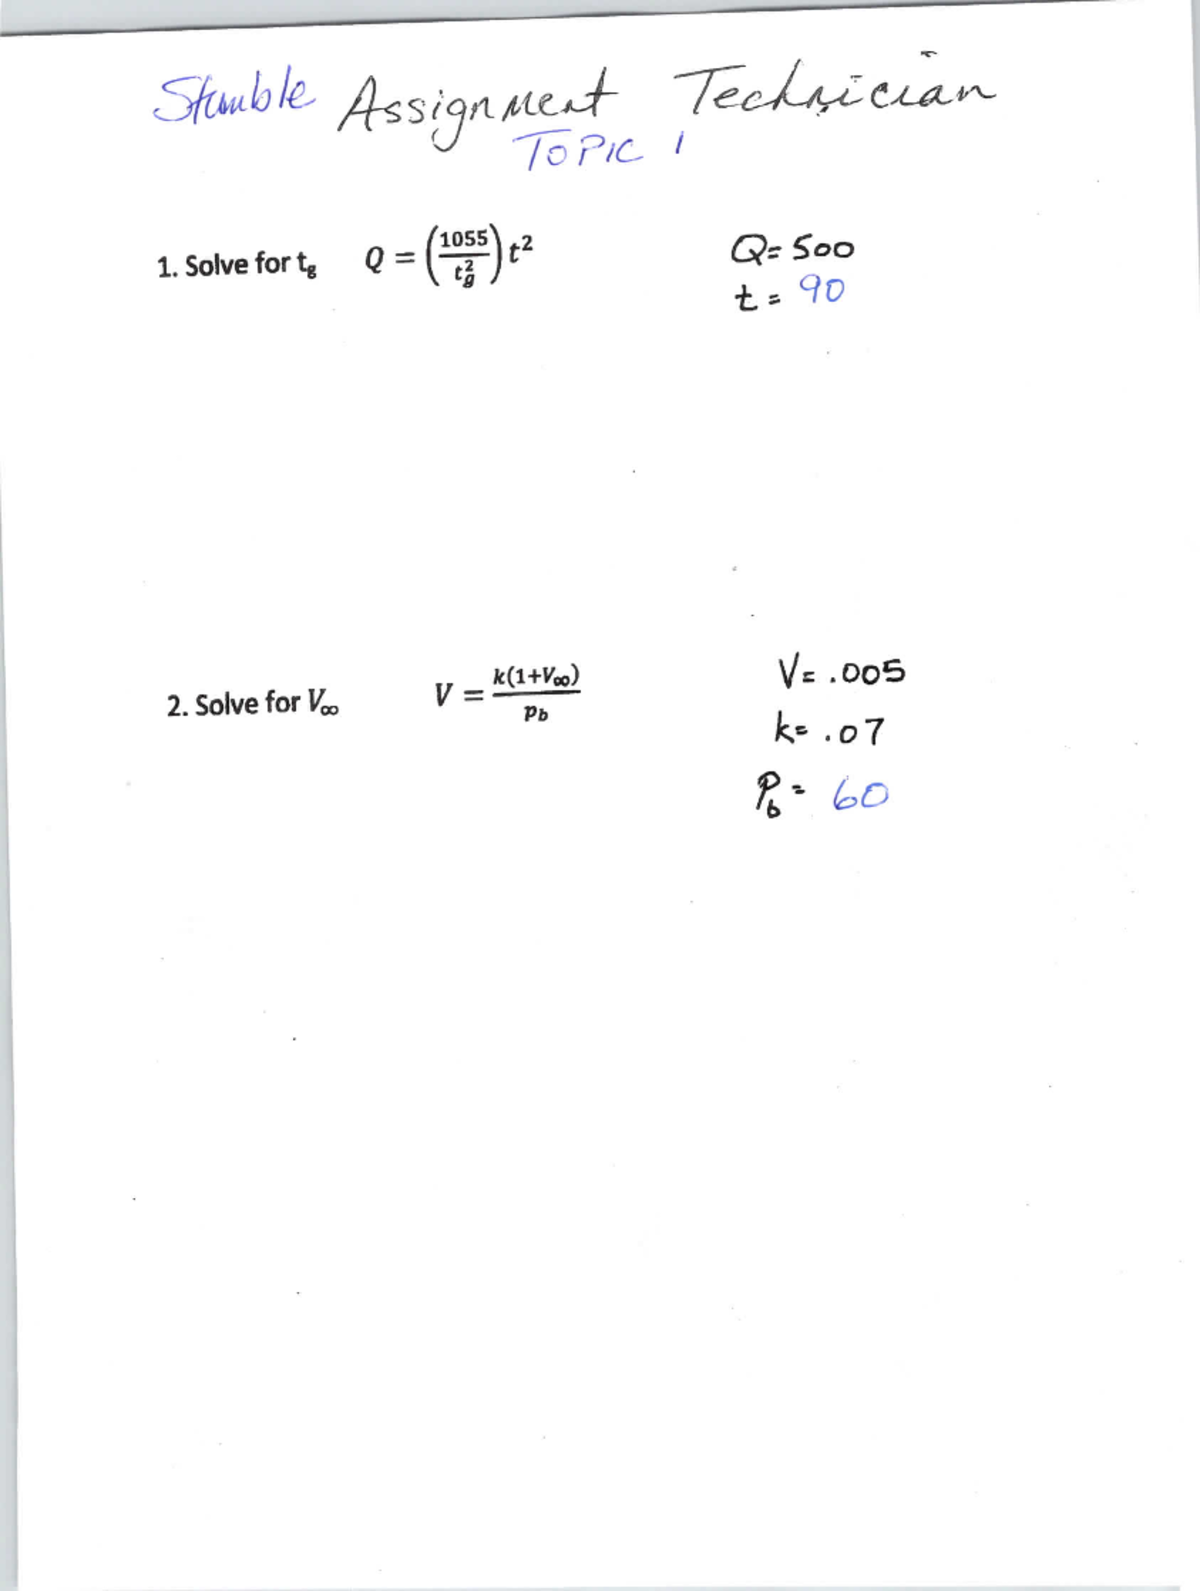 Stumble Assignment Technician
TOPIC 1
1. Solve for t_g Q = (1055/t_g^2) t^2 Q= 500
t = 90
2. Solve for V_∞ V = k(1+V_∞)/p_b V= .005
k= .07
P_b = 60